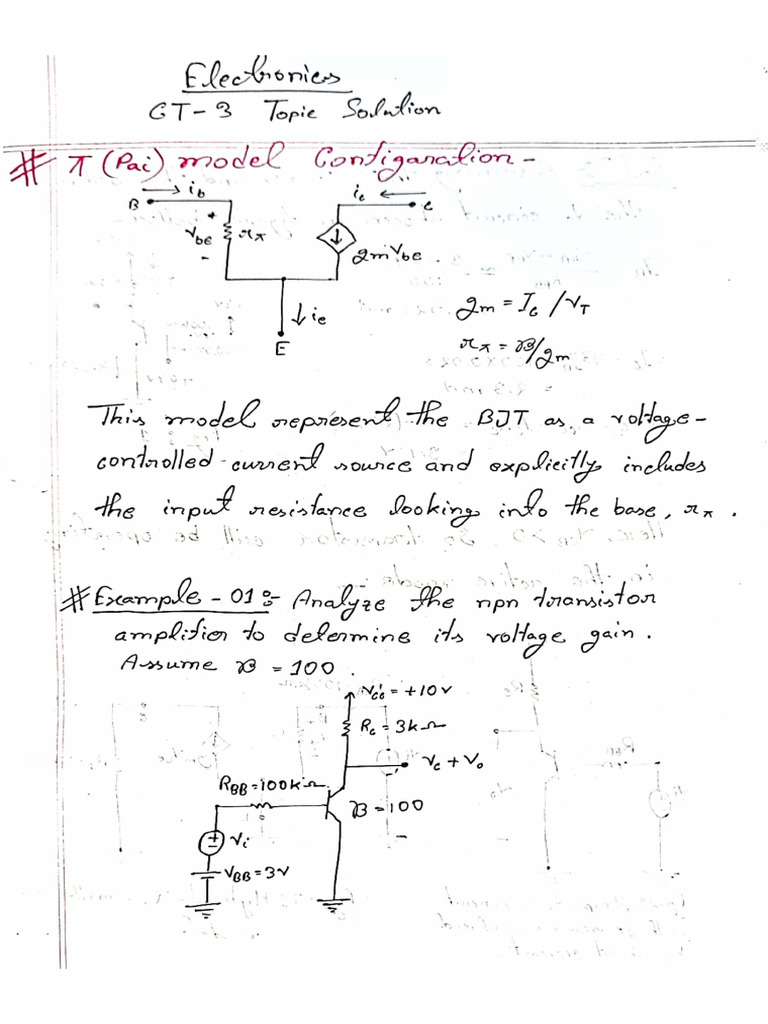 Electronics
CT-3 Topic Solution
# π (Pai) model Configaration -
B → ib
ic ← c
+
Vbe rπ
-
gmVbe.
↓ ie
E
gm = Ic /VT
rπ = β/gm
This model represent the BJT as a voltage-
controlled current source and explicitly includes
the input resistance looking into the base, rπ.
# Example - 01 :- Analyze the npn transistor
amplifier to determine its voltage gain.
Assume β = 100.
Vcc = +10v
Rc = 3kΩ
Vc + Vo
RBB = 100kΩ
β = 100
Vi
VBB = 3V